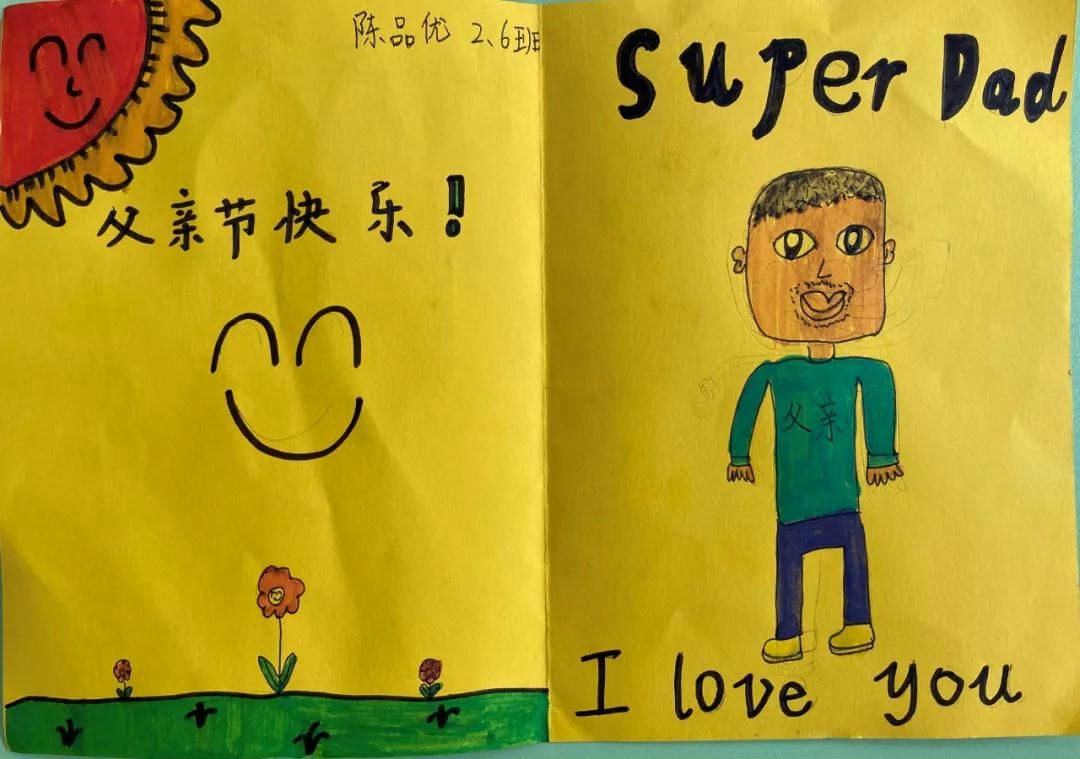 陈品优 2、6班
父亲节快乐！
Super Dad
父亲
I love you